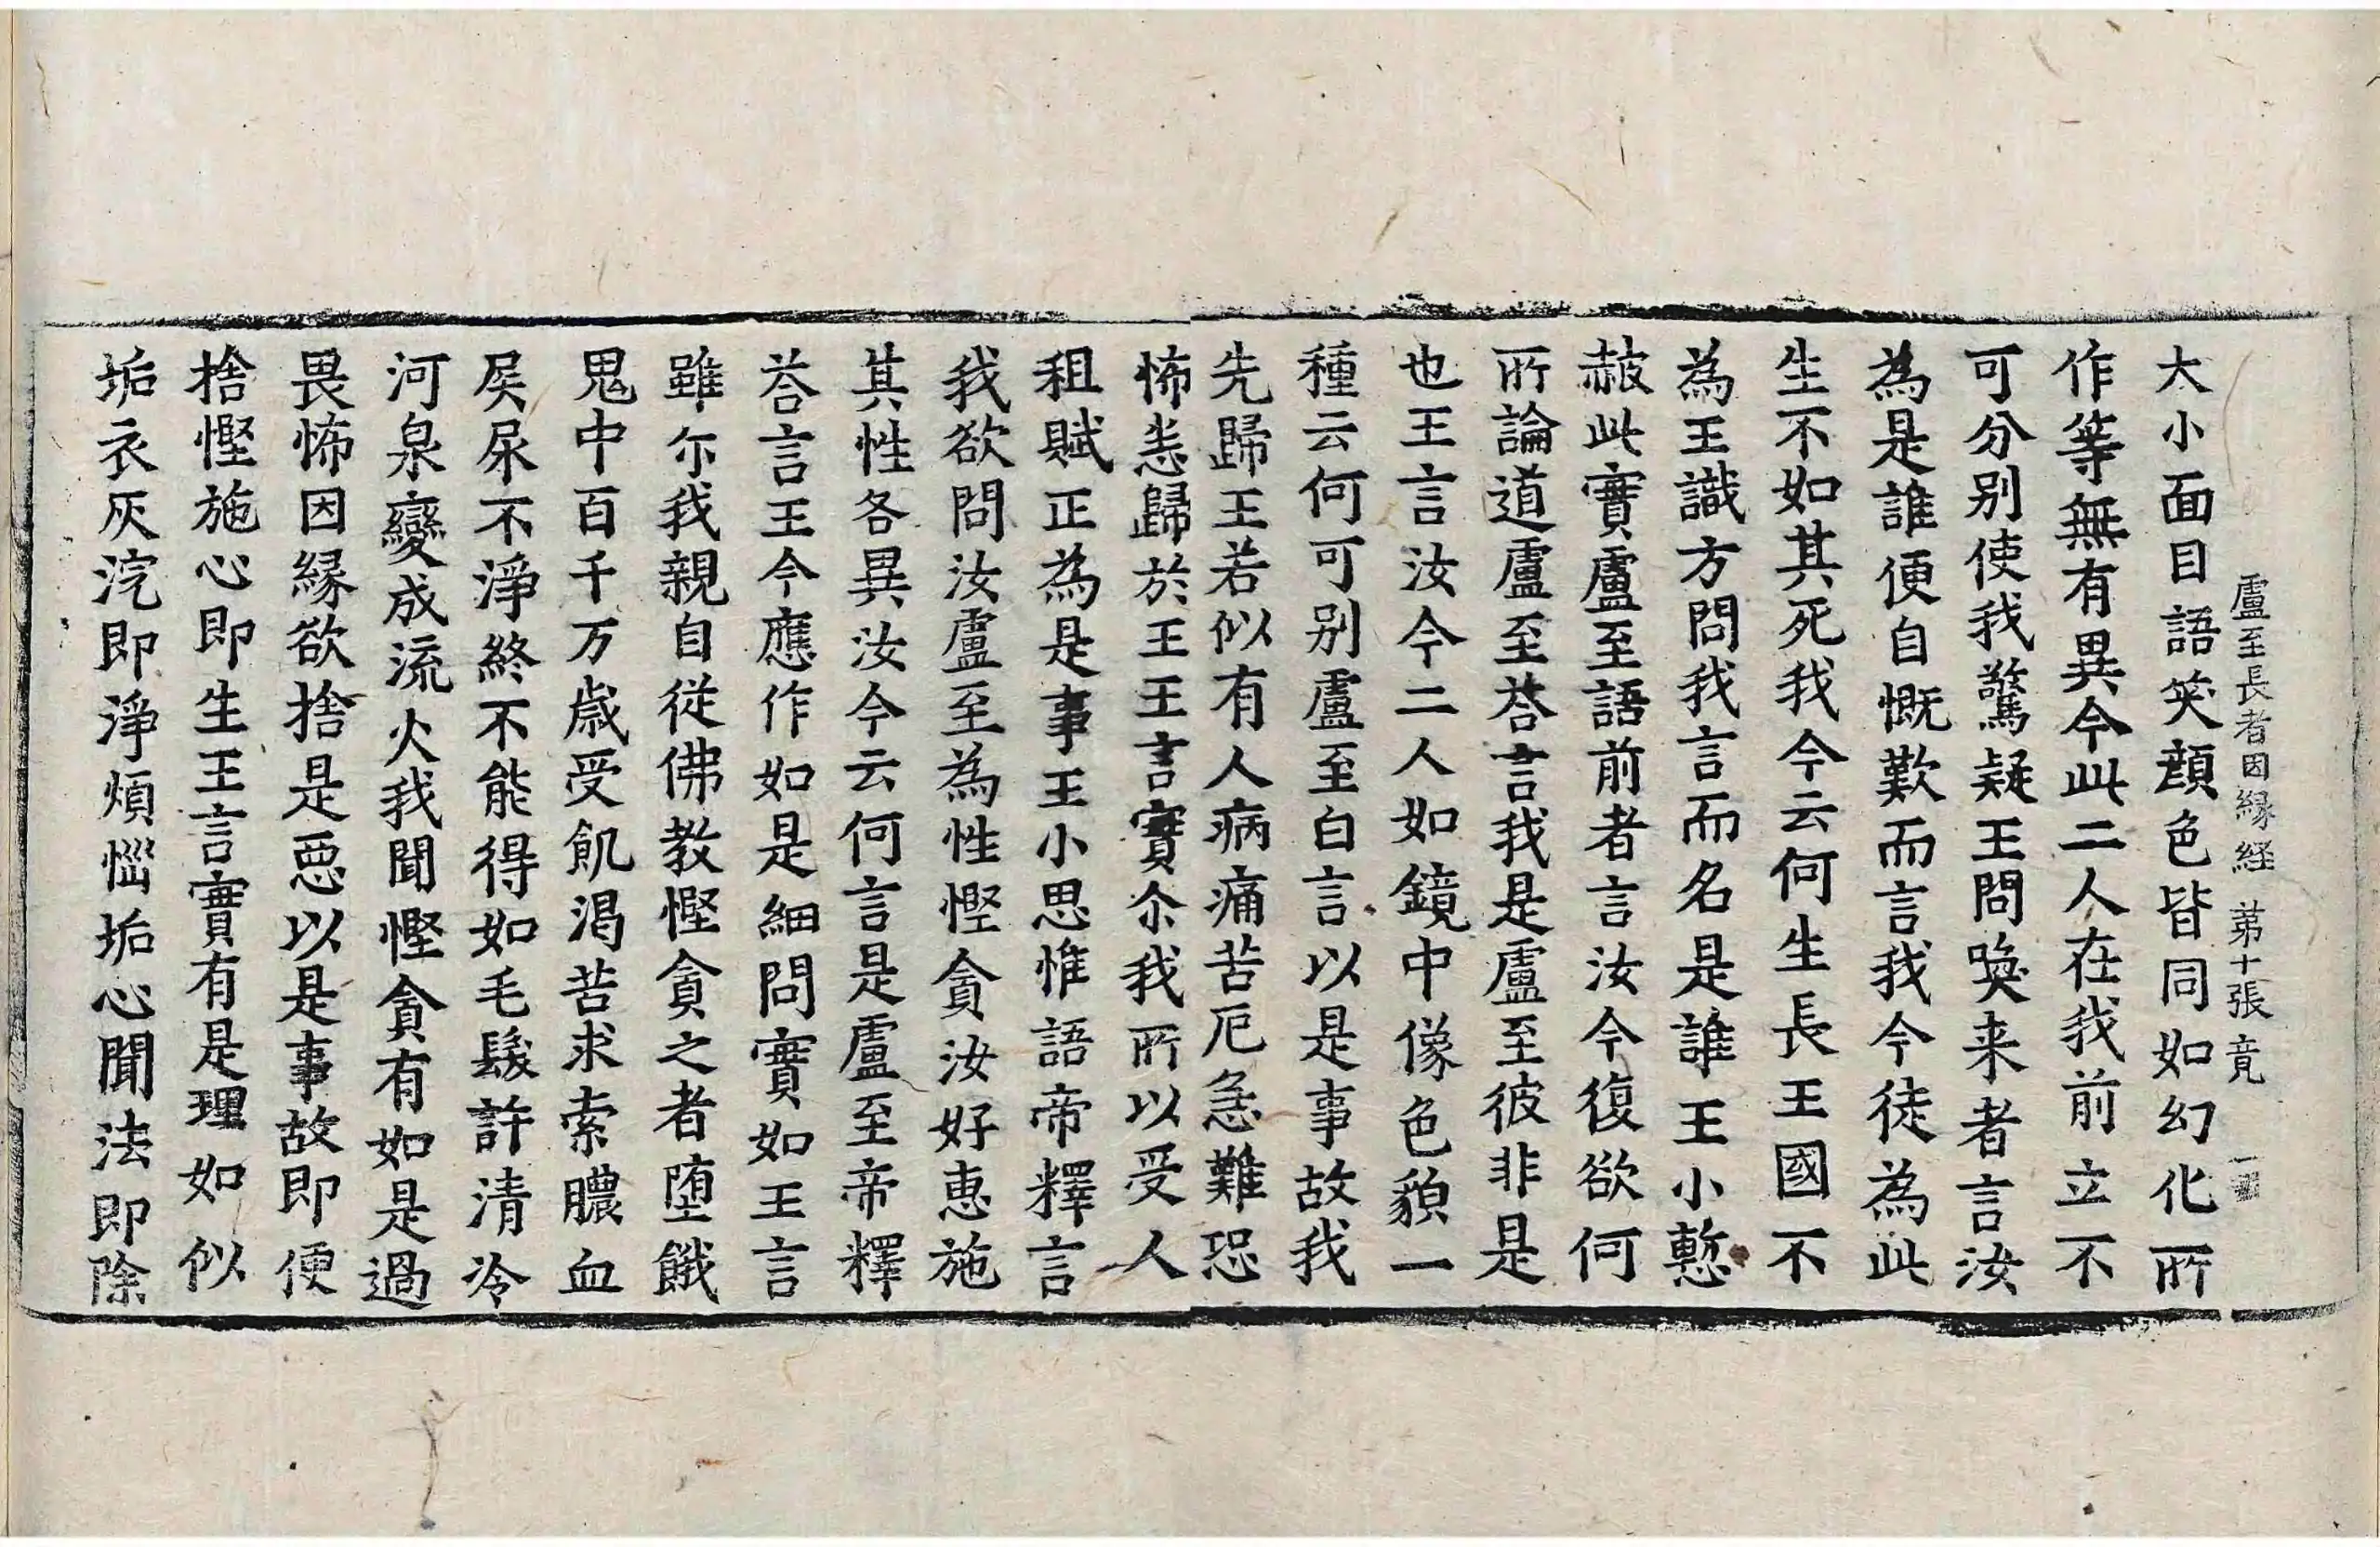 盧至長者因縁経 第十張 竟
大小面目語笑顔色皆同如幻化所
作等無有異今此二人在我前立不
可分别使我驚疑王問喚来者言汝
為是誰便自慨歎而言我今徒為此
生不如其死我今云何生長王國不
為王識方問我言而名是誰王小慙
赧此實盧至語前者言汝今復欲何
所論道盧至荅言我是盧至彼非是
也王言汝今二人如鏡中像色貌一
種云何可别盧至白言以是事故我
先歸王若似有人病痛苦厄急難恐
怖恚歸於王王言實尒我所以受人
租賦正為是事王小思惟語帝釋言
我欲問汝盧至為性慳貪汝好惠施
其性各異汝今云何言是盧至帝釋
荅言王今應作如是細問實如王言
雖尓我親自従佛教慳貪之者堕餓
鬼中百千万歳受飢渴苦求索膿血
屎尿不淨終不能得如毛髮許清冷
河泉變成流火我聞慳貪有如是過
畏怖因縁欲捨是惡以是事故即便
捨慳施心即生王言實有是理如似
垢衣灰浣即淨煩惱垢心聞法即除